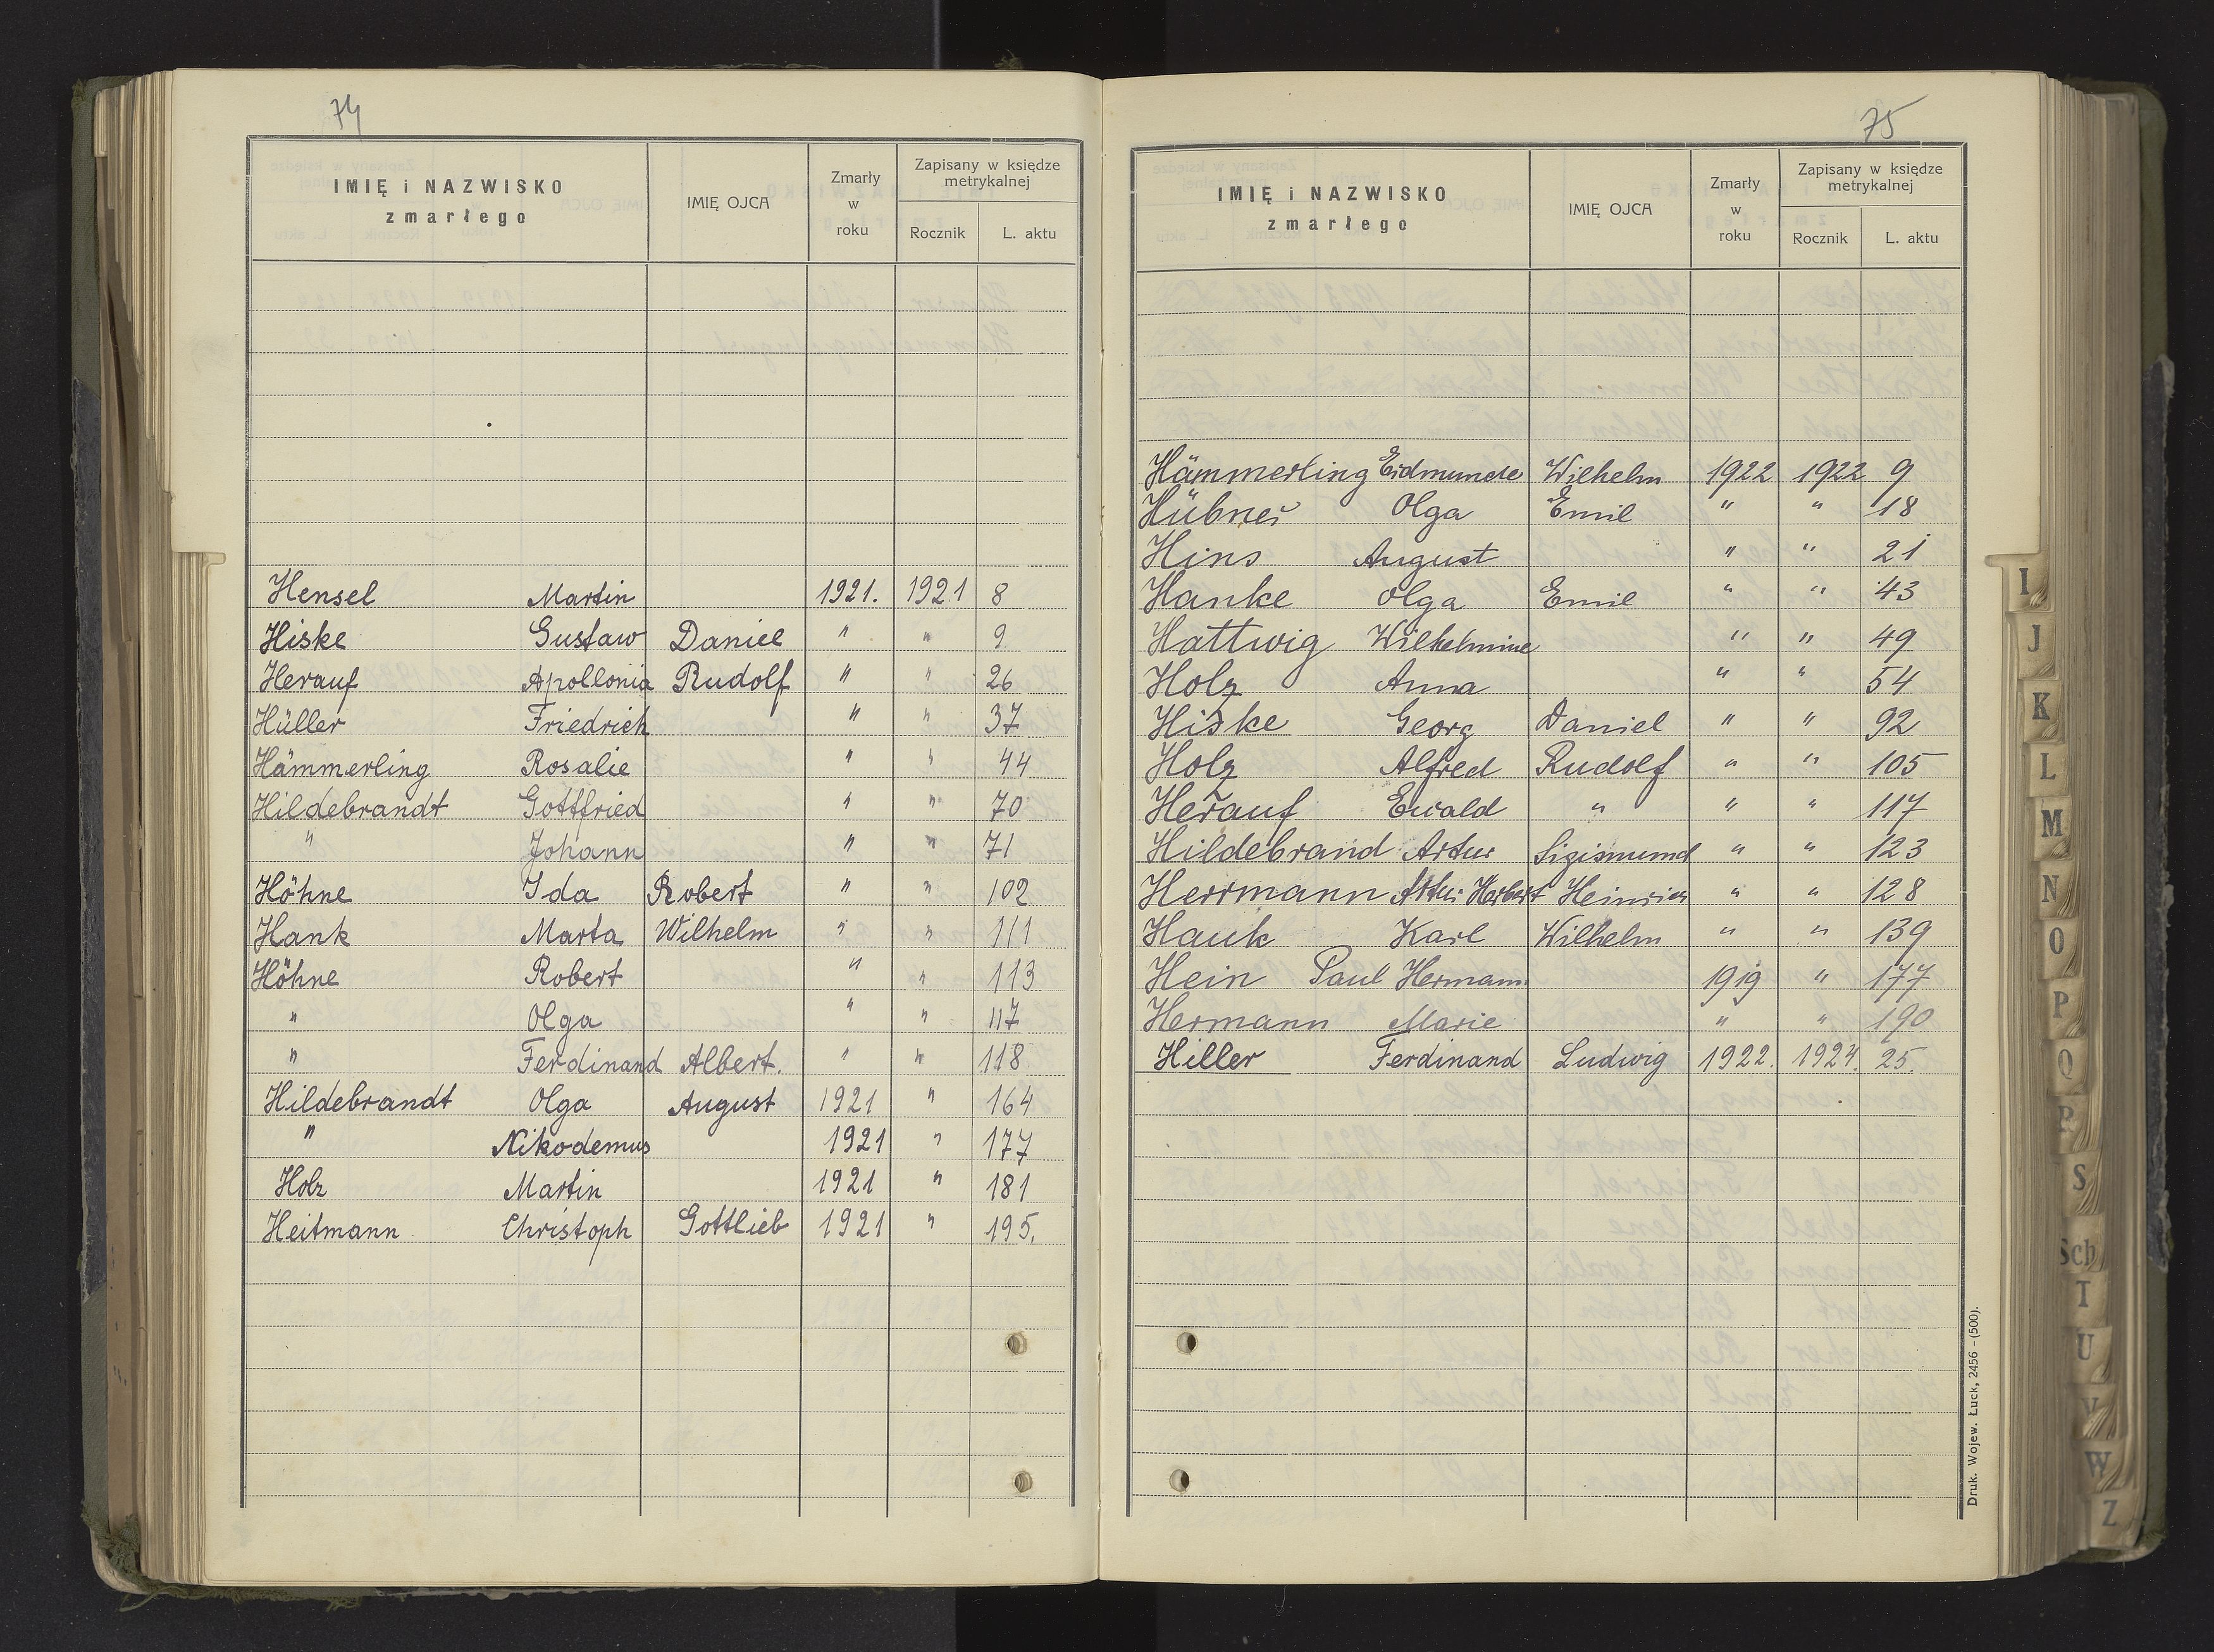 74
IMIĘ i NAZWISKO zmarłego IMIĘ OJCA Zmarły w roku Zapisany w księdze metrykalnej Rocznik L. aktu
Hensel Martin 1921. 1921 8
Hiske Gustaw Daniel " " 9
Herauf Apollonia Rudolf " " 26
Hüller Friedrich " " 37
Hämmerling Rosalie " " 44
Hildebrandt Gottfried " " 70
" Johann " " 71
Höhne Ida Robert " " 102
Hank Marta Wilhelm " " 111
Höhne Robert " " 113
" Olga " " 117
" Ferdinand Albert. " " 118
Hildebrandt Olga August 1921 " 164
" Nikodemus 1921 " 177
Holz Martin 1921 " 181
Heitmann Christoph Gottlieb 1921 " 195.
75
IMIĘ i NAZWISKO zmarłego IMIĘ OJCA Zmarły w roku Zapisany w księdze metrykalnej Rocznik L. aktu
Hämmerling Eidmunde Wilhelm 1922 1922 9
Hübner Olga Emil " " 18
Hins August " " 21
Hanke Olga Emil " " 43
Hattwig Wilhelmine " " 49
Holz Anna " " 54
Hiske Georg Daniel " " 92
Holz Alfred Rudolf " " 105
Herauf Ewald " " " 117
Hildebrand Artur Sigismund " " 123
Herrmann Artur Herbert Heinrich " " 128
Hauk Karl Wilhelm " " 139
Hein Paul Hermann 1919 " 177
Hermann Marie " " 190
Hiller Ferdinand Ludwig 1922. 1924. 25.
Druk. Wojew. Łuck, 2456 - (500).
I
J
K
L
M
N
O
P
Q
R
S
Sch
T
U
V
W
Z